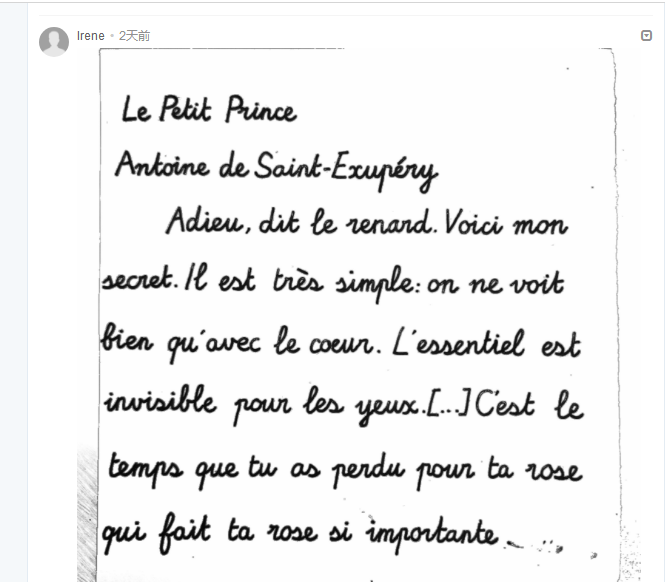 Irene • 2天前
Le Petit Prince
Antoine de Saint-Exupéry
Adieu, dit le renard. Voici mon
secret. Il est très simple: on ne voit
bien qu'avec le coeur. L'essentiel est
invisible pour les yeux.[...] C'est le
temps que tu as perdu pour ta rose
qui fait ta rose si importante.